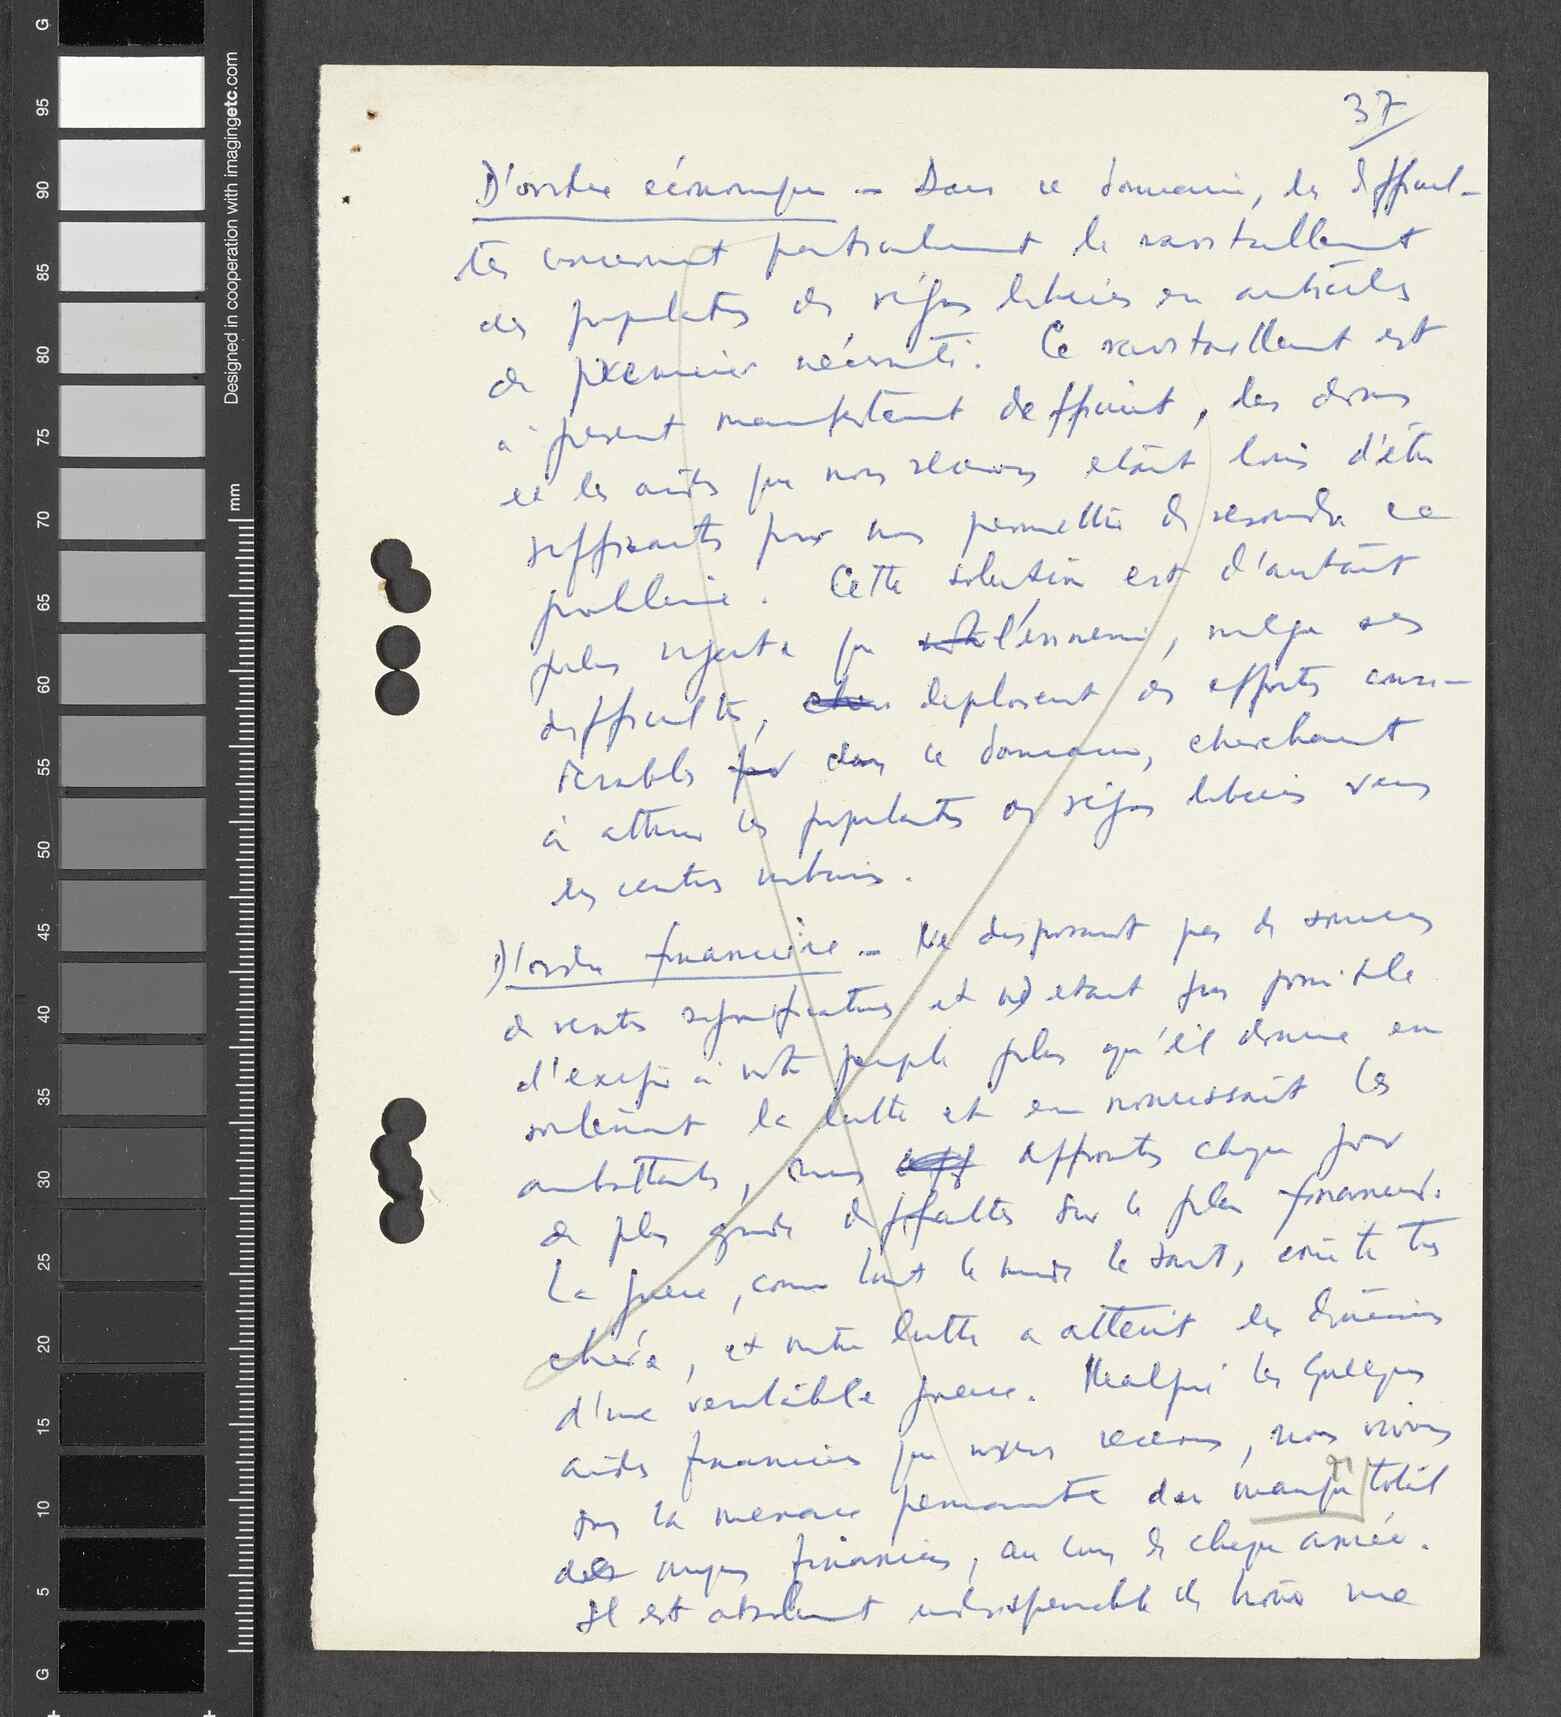 37
D'ordre économique - Dans ce domaine, les difficul-
tés concernent particulièrement le ravitaillement
des populations des régions libérées en articles
de première nécessité. Ce ravitaillement est
à présent manifestement déficient, les dons
et les aides que nous recevons étant loin d'être
suffisants pour nous permettre de resoudre ce
problème. Cette solution est d'autant
plus urgente que l'ennemi, malgré ses
difficultés, deploient des efforts consi-
derables dans ce domaine, cherchant
à attirer les populations des régions libérées vers
les centres urbains.
D'ordre financière - Ne disposant pas de sources
de rentes significatives et n'etant pas possible
d'exiger à notre peuple plus qu'il donne en
soutenant la lutte et en nourissant les
combattants, nous affrontons chaque jour
de plus grandes difficultés sur le plan financier.
La guerre, comme tout le monde le sait, coûte très
chère, et notre lutte a atteint les dimensions
d'une veritable guerre. Malgré les quelques
aides financières que nous recevons, nous vivons
sous la menace permanente du manque total
de moyens financiers, au cours de chaque année.
Il est absolument indispensable de trouver une
Designed in cooperation with imagingetc.com
mm
G
95
90
85
80
75
70
65
60
55
50
45
40
35
30
25
20
15
10
5
G